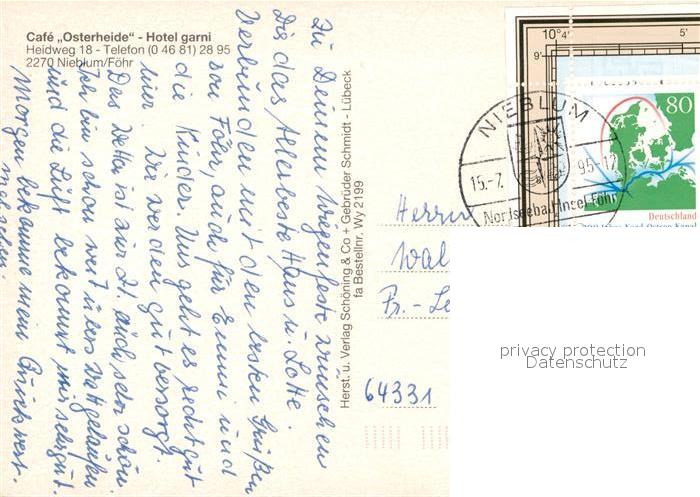 Café „Osterheide" - Hotel garni
Heidweg 18 - Telefon (0 46 81) 28 95
2270 Nieblum/Föhr
Zu Deinem Wiegenfeste wünschen
Dir das Allerbeste Hans u. Lotte.
Verbunden mit den besten Grüßen
von Föhr, auch für Emmi und
die Kinder. Uns geht es recht gut
hier. Wir werden gut versorgt.
Das Wetter ist zur Zt. auch sehr schön.
Ich bin schon weit übers Watt gelaufen
und die Luft bekommt mir sehr gut.
Morgen bekomme mein
Herst. u. Verlag Schöning & Co + Gebrüder Schmidt - Lübeck
fa Bestellnr. Wy 2199
10°4'
5'
9'
80
Deutschland
NIEBLUM
15.-7.
95-17
Nordseebad Insel Föhr
Herrn
Wal
Fr.-Le
64331
privacy protection
Datenschutz